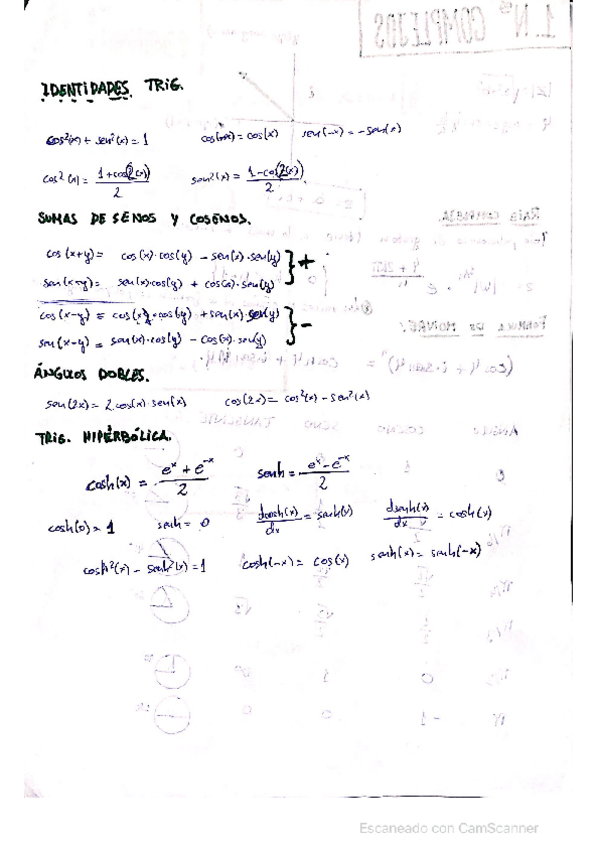 IDENTIDADES TRIG.
cos²(x) + sen²(x) = 1 cos(-x) = cos(x) sen(-x) = -sen(x)
cos²(x) = \frac{1+cos(2(x))}{2} sen²(x) = \frac{1-cos(2(x))}{2}
SUMAS DE SENOS Y COSENOS.
cos(x+y) = cos(x)·cos(y) - sen(x)·sen(y) } +
sen(x+y) = sen(x)·cos(y) + cos(x)·sen(y)
cos(x-y) = cos(x)·cos(y) + sen(x)·sen(y) } -
sen(x-y) = sen(x)·cos(y) - cos(x)·sen(y)
ÁNGULOS DOBLES.
sen(2x) = 2·cos(x)·sen(x) cos(2x) = cos²(x) - sen²(x)
TRIG. HIPERBÓLICA.
cosh(x) = \frac{e^x + e^{-x}}{2} senh = \frac{e^x - e^{-x}}{2}
cosh(0) = 1 senh = 0 \frac{dcosh(x)}{dx} = senh(x) \frac{dsenh(x)}{dx} = cosh(x)
cosh²(x) - senh²(x) = 1 cosh(-x) = cos(x) senh(x) = senh(-x)
Escaneado con CamScanner